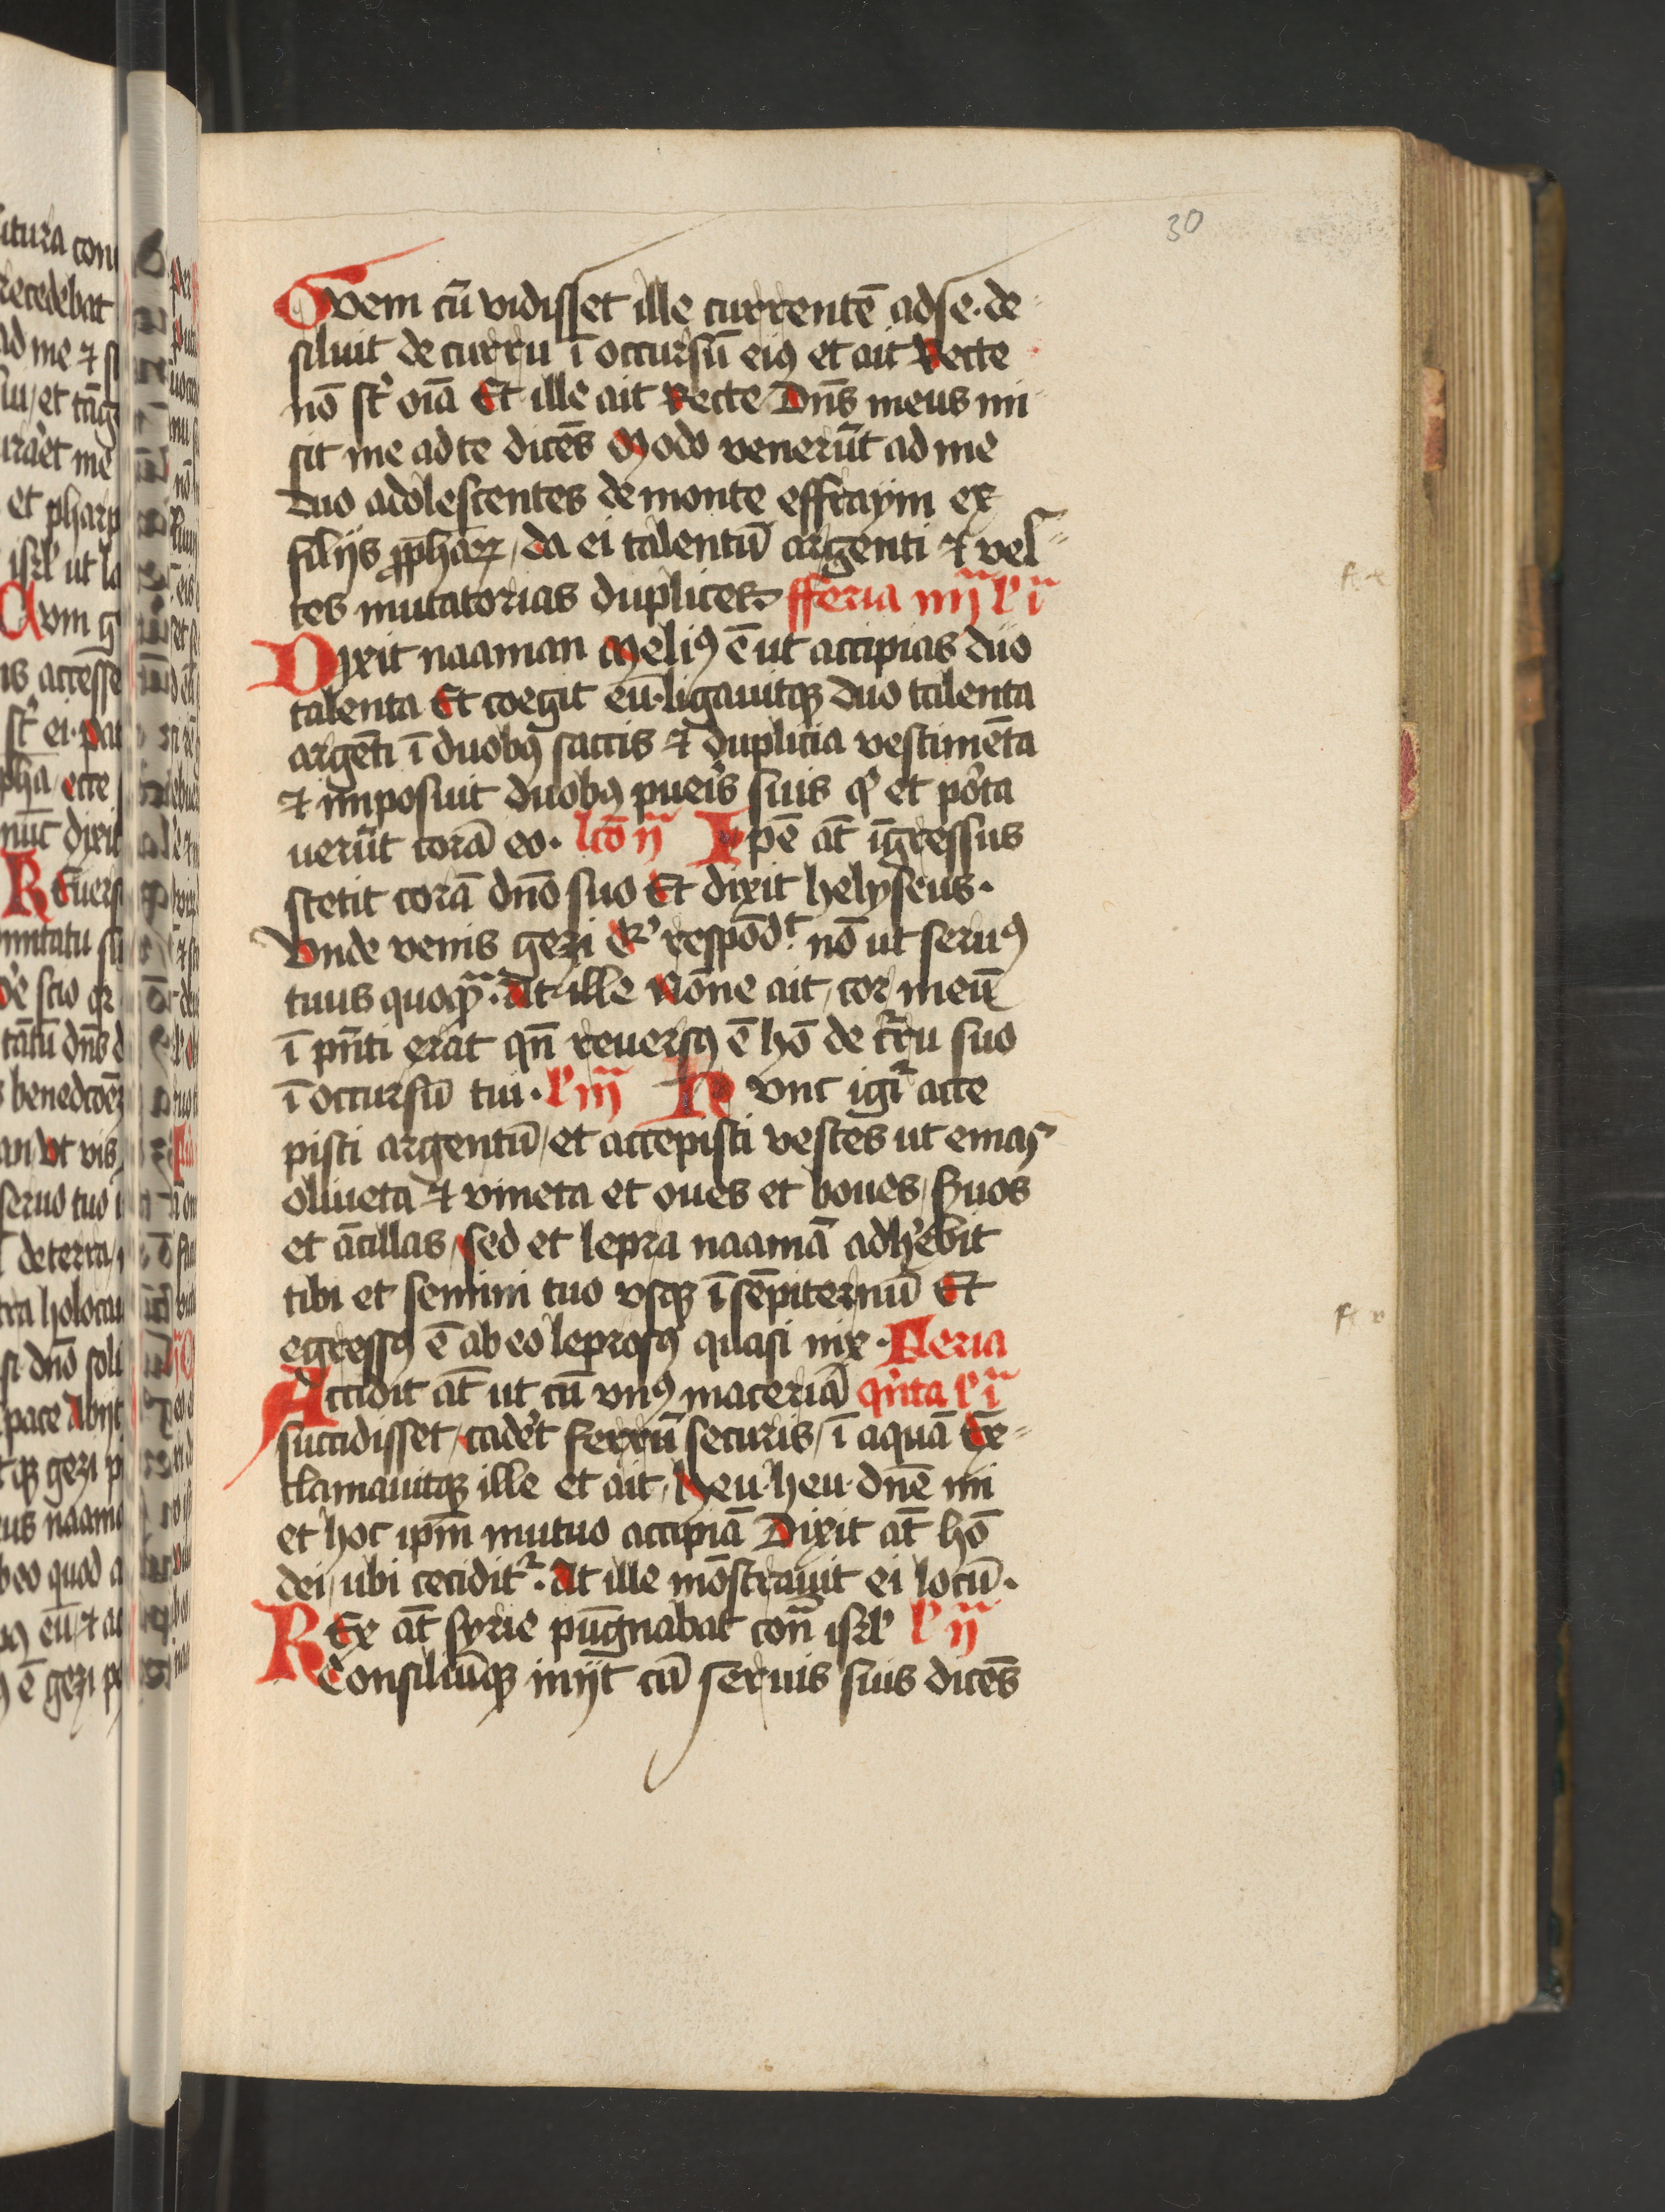 30
Quem cū vidisset ille currentē ad se · de
siluit de curru ī occursū eiꝯ et ait Recte
nō st̄ oīa Et ille ait Recte Dn̄s meus mi
sit me ad te dicēs Modo venerūt ad me
duo adolescentes de monte effraym ex
filijs ꝓphaꝝ / da ei talentū argenti ⁊ ves
tes mutatorias duplices · fferia iiij l' i
Dixit naaman Meliꝯ ē ut accipias duo
talenta Et coegit eū · ligauitqꝫ duo talenta
argēti ī duobꝯ saccis ⁊ duplicia vestimēta
⁊ imposuit duobꝯ pueris suis q' et porta
uerūt corā eo · lcō ij Ipē at̄ īgressus
stetit corā dn̄o suo Et dixit helyseus ·
Vnde venis gezi Q' respōdt nō ut seruꝯ
tuus quoqͣ · At ille Nōne ait / cor meū
ī pn̄ti erat qn̄ reuersꝯ ē hō de curru suo
ī occursū tui · l' iij Hunc igiť acce
pisti argentū / et accepisti vestes ut emas
oliueta ⁊ vineta et oues et boues / suos
et ācillas / sed et lepra naamā adherebit
tibi et semini tuo vsqꝫ ī sēpiternū Et
egressꝯ ē ab eo leprosꝯ quasi nix · Feria
Accidit at̄ ut cū vnꝯ materiā qn̄ta l' i
succidisset / caderet ferrū securis / ī aquā Ex
clamauitqꝫ ille et ait / heu · heu · dn̄e mi
et hoc ipm̄ mutuo accipiā Dixit at̄ hō
dei / ubi cecidit · At ille mōstrauit ei locū ·
REx at̄ syrie pūgnabat con̄ isrl' l' ij
Consiliūqꝫ inijt cū seruis suis dicēs